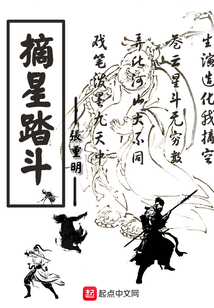 生演造化我摘空
苍云星斗无穷数
弄此河山大不同
戏笔泼墨九天中
摘星踏斗
张重明
起点中文网